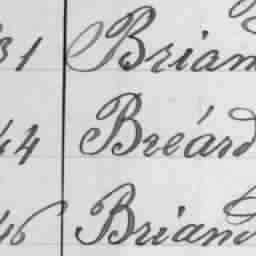 31 Brian
44 Bréard
46 Briand